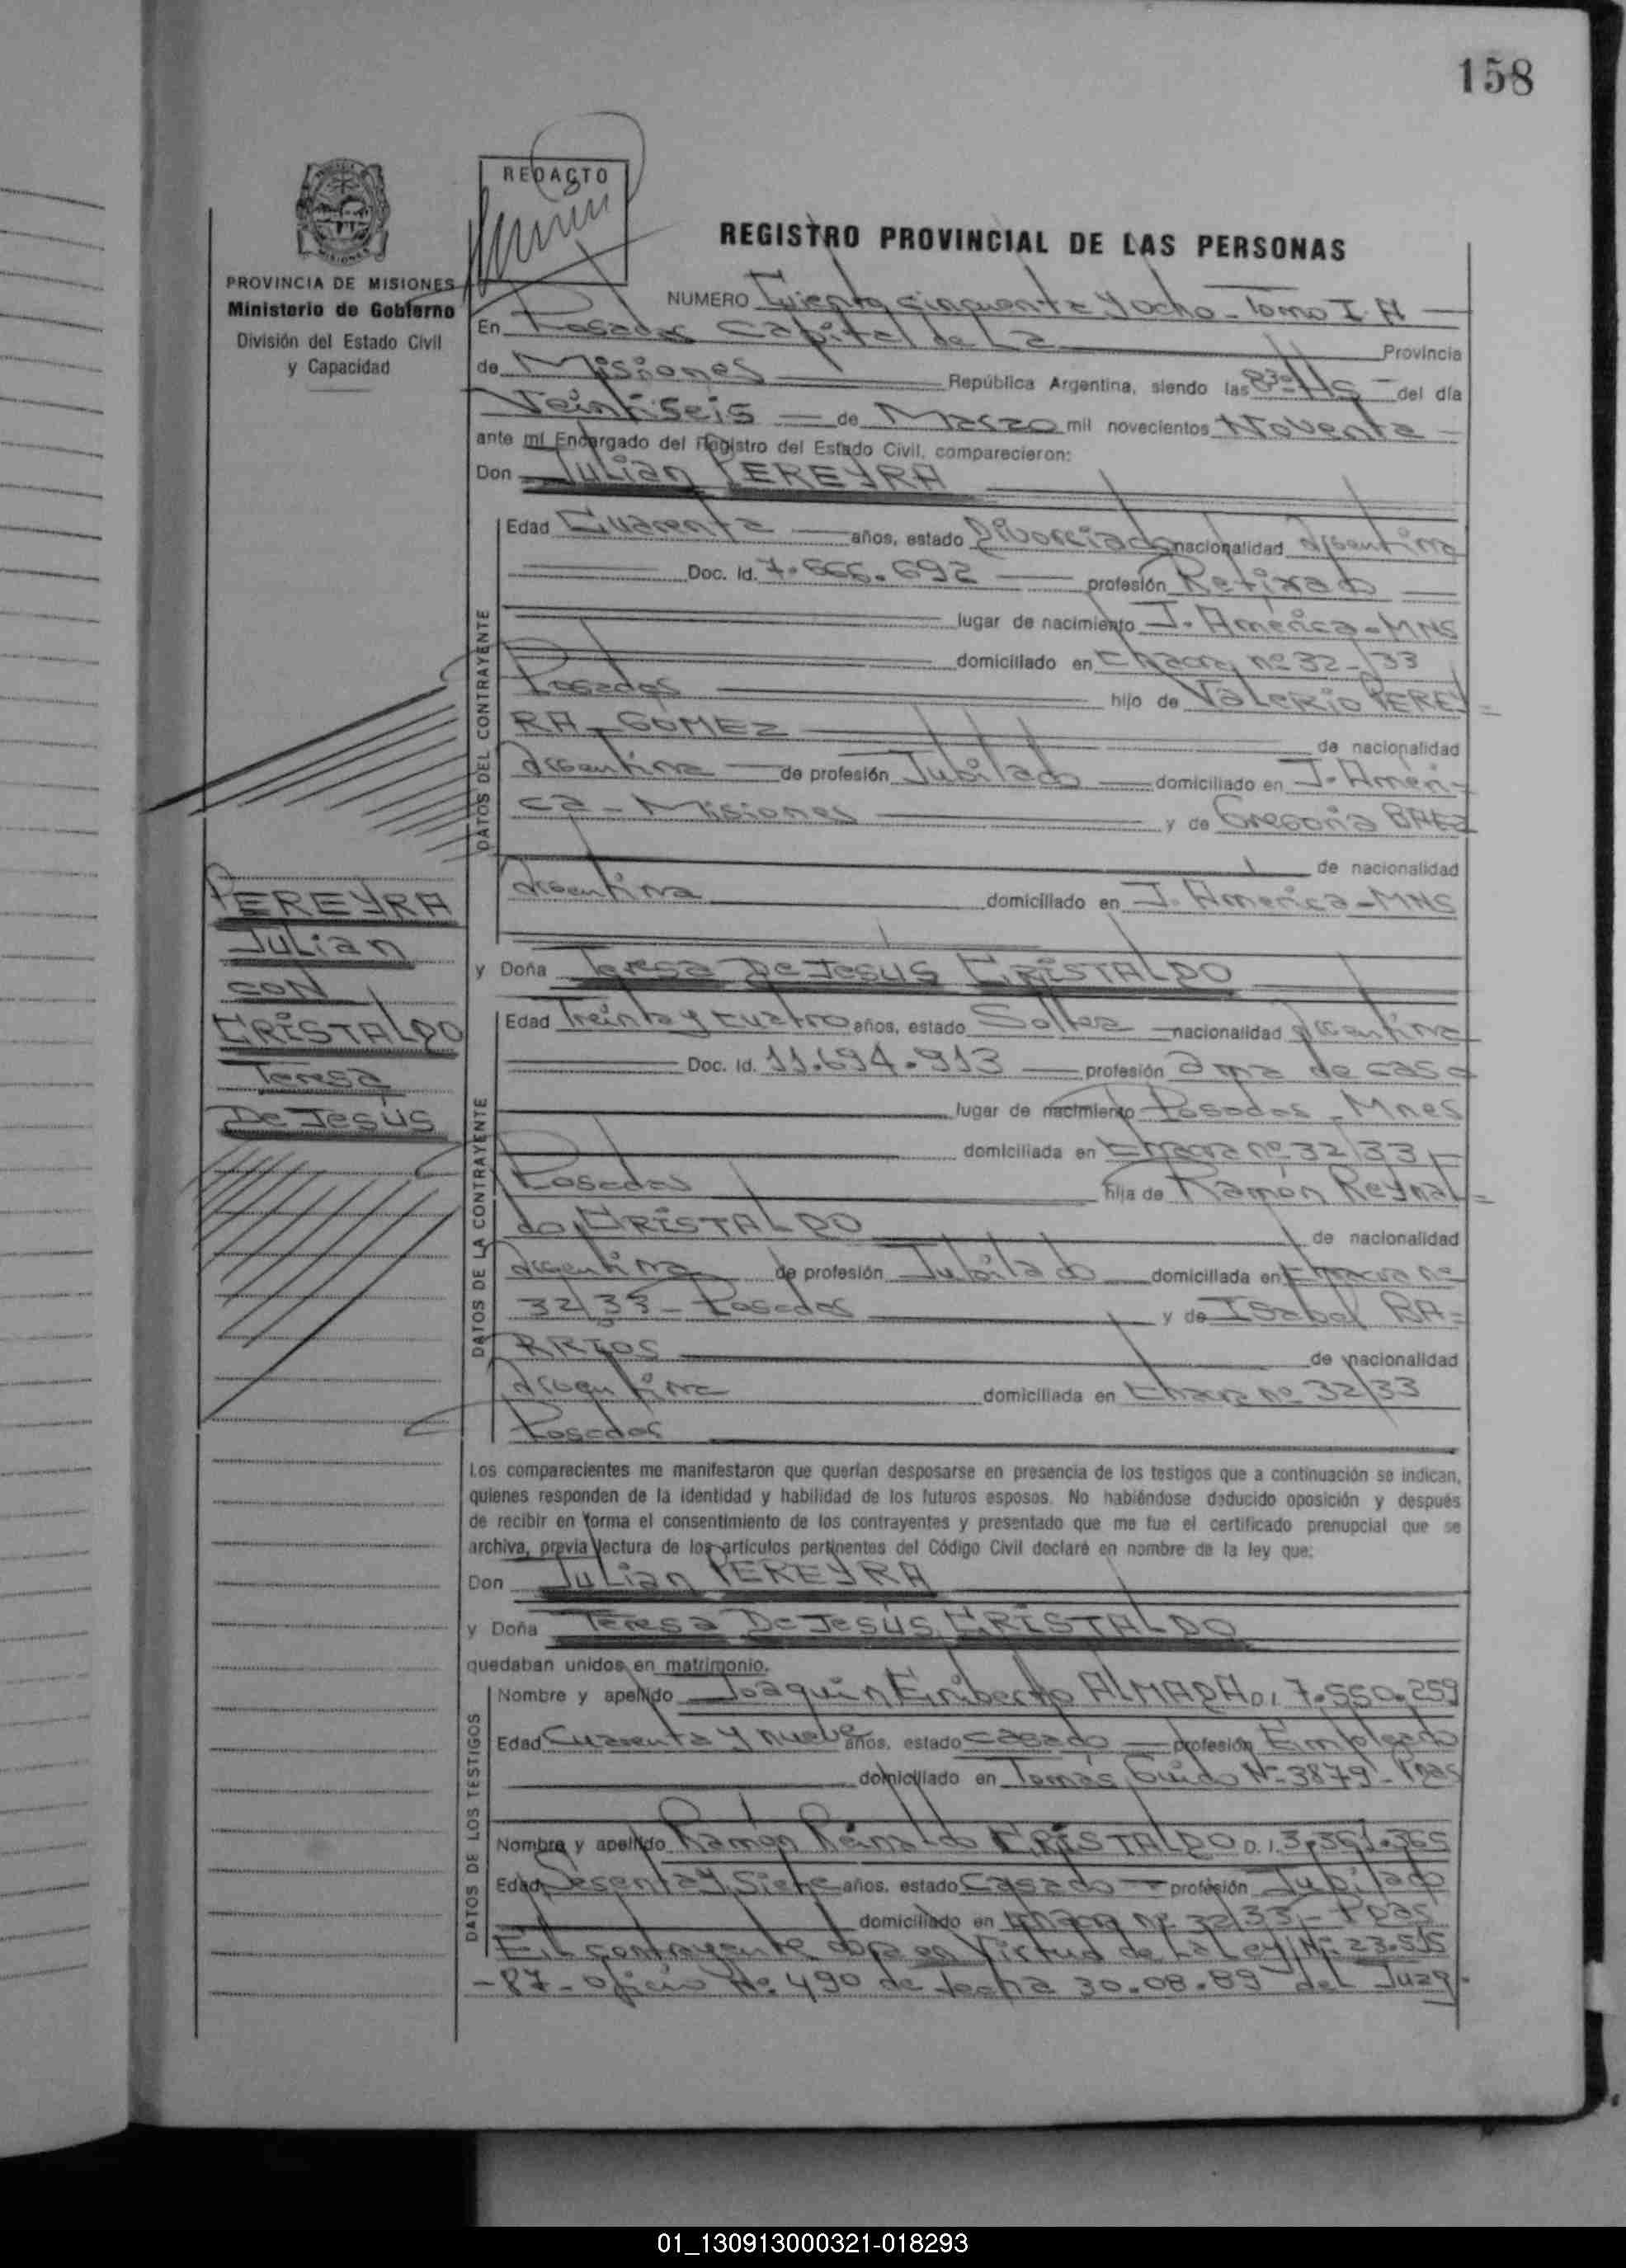 158
REDACTO
PROVINCIA DE MISIONES
Ministerio de Gobierno
División del Estado Civil
y Capacidad
REGISTRO PROVINCIAL DE LAS PERSONAS
NUMERO Ciento cinquenta y ocho - Tomo I. A
En Posadas Capital de La Provincia
de Misiones República Argentina, siendo las 830 Hs del día
Veintiseis de Marzo mil novecientos Noventa
ante mí Encargado del Registro del Estado Civil, comparecieron:
Don Julian PEREYRA
DATOS DEL CONTRAYENTE
Edad Cuarenta años, estado Divorciado nacionalidad Argentina
Doc. Id. 7.666.692 profesión Retirado
lugar de nacimiento J. América - MNS
domiciliado en Chacra nº 32-33
Posadas hijo de Valerio PEREY=
RA - GOMEZ de nacionalidad
Argentina de profesión Jubilado domiciliado en J. Améri-
ca - Misiones y de Gregoria BAEZ
de nacionalidad
Argentina domiciliado en J. América - MNS
PEREYRA
Julian
CON
CRISTALDO
Teresa
De Jesús
y Doña Teresa De Jesus CRISTALDO
DATOS DE LA CONTRAYENTE
Edad Treinta y cuatro años, estado Soltera nacionalidad Argentina
Doc. Id. 11.694.913 profesión ama de casa
lugar de nacimiento Posadas - Mnes
domiciliada en Chacra nº 32/33 -
Posadas hija de Ramón Reynal=
do CRISTALDO de nacionalidad
Argentina de profesión Jubilado domiciliada en Chacra nº
32/33 - Posadas y de Isabel BA=
RRIOS de nacionalidad
Argentina domiciliada en Chacra nº 32/33
Posadas
Los comparecientes me manifestaron que querían desposarse en presencia de los testigos que a continuación se indican,
quienes responden de la identidad y habilidad de los futuros esposos. No habiéndose deducido oposición y después
de recibir en forma el consentimiento de los contrayentes y presentado que me fue el certificado prenupcial que se
archiva, previa lectura de los artículos pertinentes del Código Civil declaré en nombre de la ley que:
Don Julian PEREYRA
y Doña Teresa De Jesús CRISTALDO
quedaban unidos en matrimonio.
DATOS DE LOS TESTIGOS
Nombre y apellido Joaquin Eriberto ALMADA D.I 7.550.259
Edad Cuarenta y nueve años, estado casado profesión Empleado
domiciliado en Tomás Guido Nº 3879 - Pdas
Nombre y apellido Ramón Reinaldo CRISTALDO D.I. 3.351.365
Edad Sesenta y Siete años, estado Casado profesión Jubilado
domiciliado en Chacra nº 32/33 - Pdas
El contrayente en Virtud de La Ley Nº 23.515
- 87 - oficio Nº 490 de fecha 30.08.89 del Juzg.
01_130913000321-018293